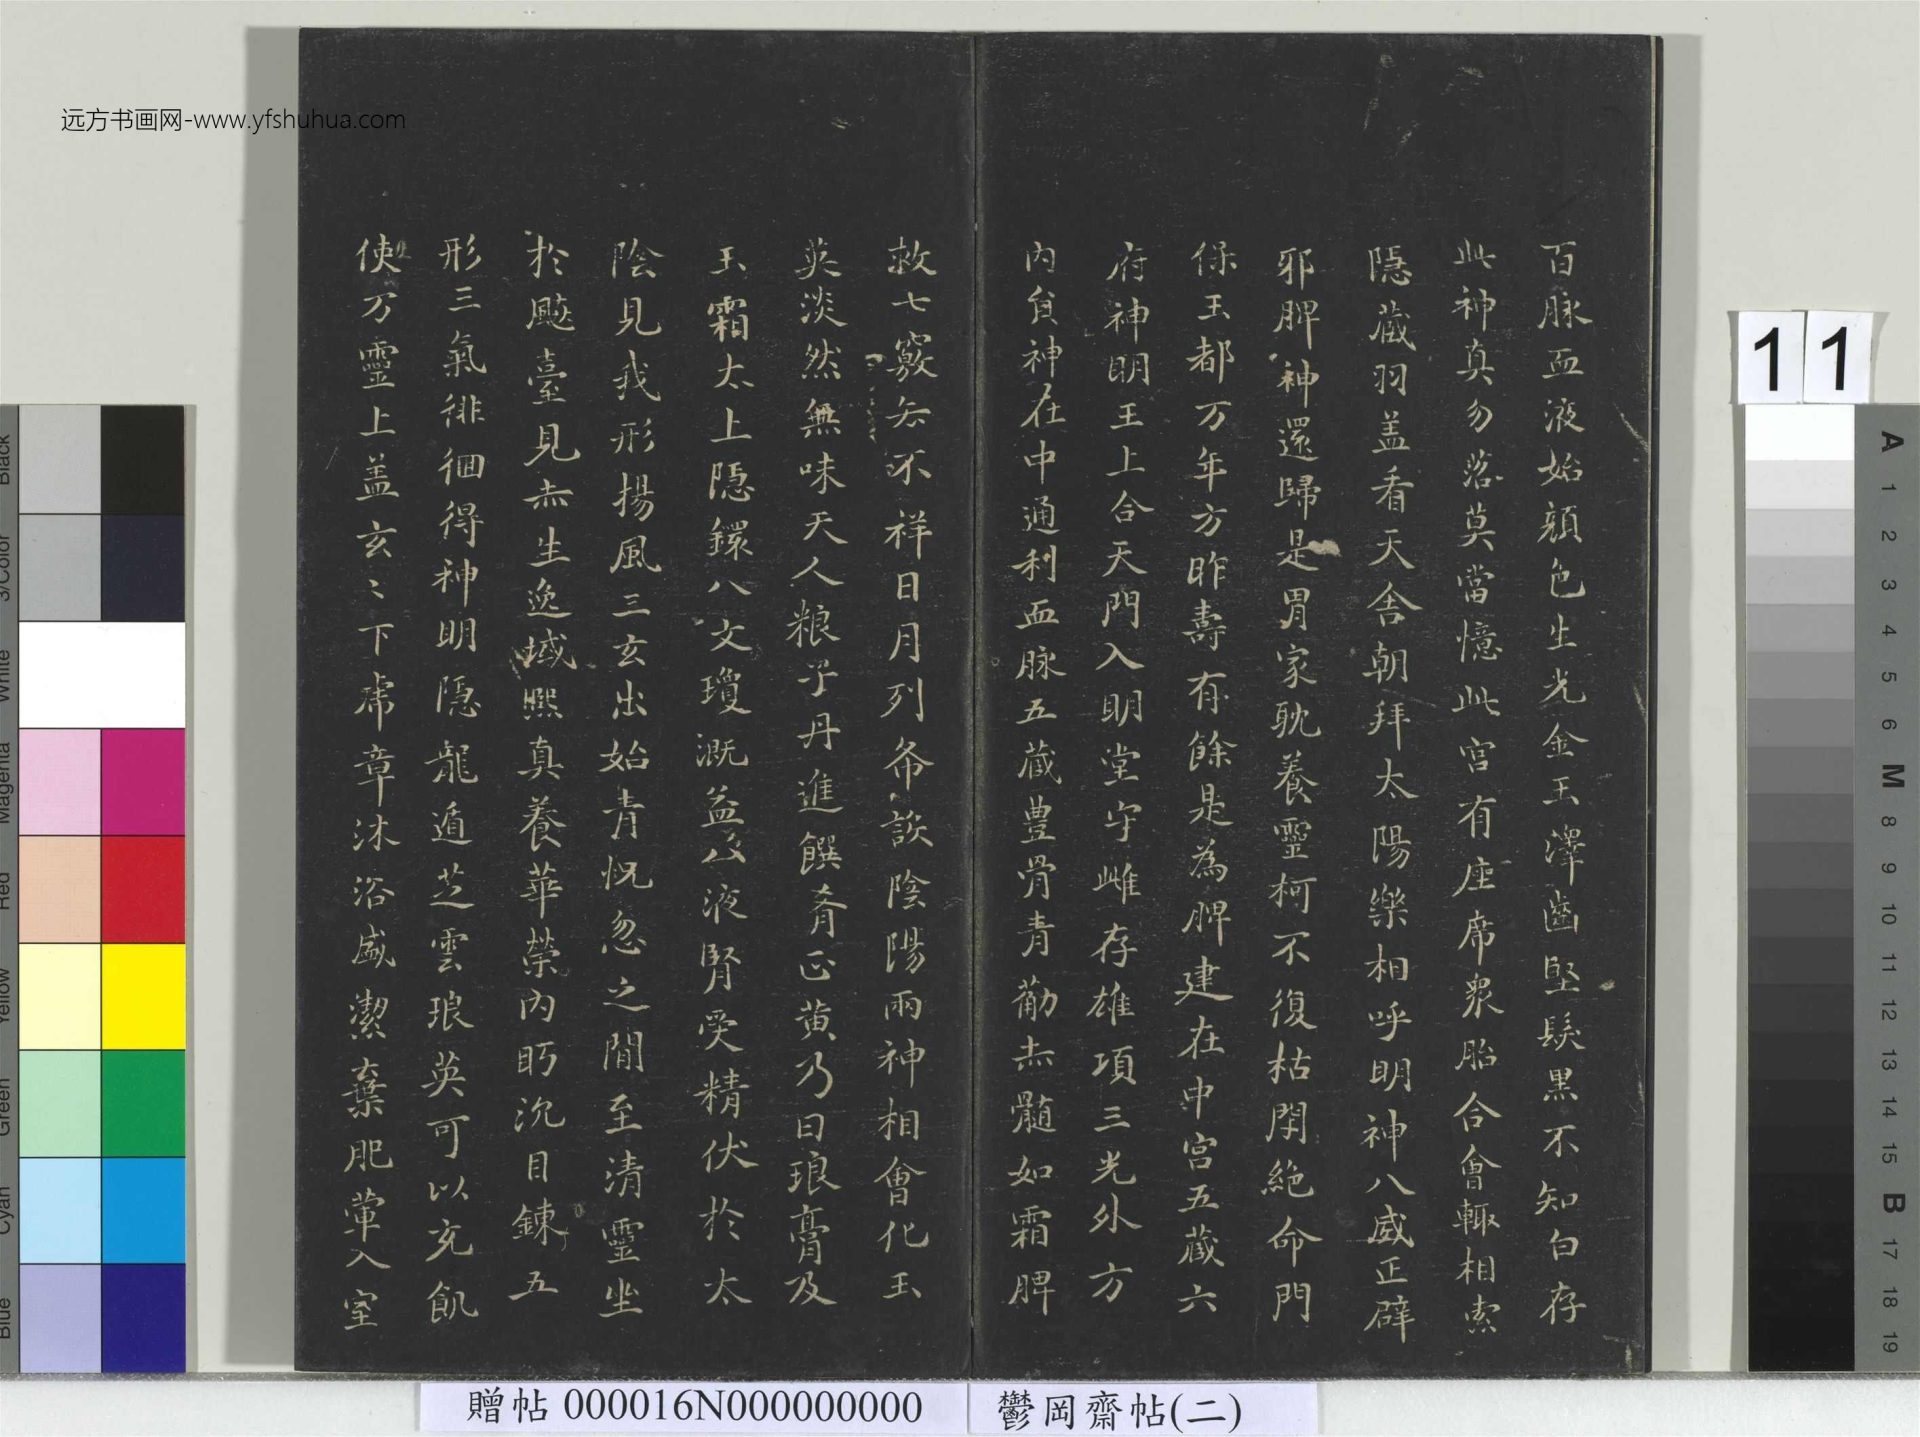 远方书画网-www.yfshuhua.com
百脉血液始顔色生光金玉澤齒堅髮黑不知白存
此神真勿落莫當憶此宮有座席衆胎合會轉相索
隱藏羽盖看天舍朝拜太陽樂相呼明神八威正辟
邪脾神還歸是胃家耽養靈柯不復枯閉絕命門
保玉都万年方昨壽有餘是為脾建在中宮五藏六
府神明王上合天門入明堂守雌存雄項三光外方
內負神在中通利血脉五藏豊骨青筋赤髓如霜脾
救七竅去不祥日月列布設陰陽兩神相會化玉
英淡然無味天人粮子丹進饌肴正黃乃曰琅膏及
玉霜太上隱鐶八文瓊溉益八液腎受精伏於太
陰見我形揚風三玄出始青怳忽之間至清靈坐
於飈臺見赤生逸域熙真養華榮內盻沉目鍊五
形三氣徘徊得神明隱龍遁芝雲琅英可以充飢
使万靈上盖玄〻下虎章沐浴盛潔棄肥葷入室
11
A 1 2 3 4 5 6 M 8 9 10 11 12 13 14 15 B 17 18 19
Black
3/Color
White
Magenta
Red
Yellow
Green
Cyan
Blue
贈帖 000016N000000000
鬱岡齋帖(二)